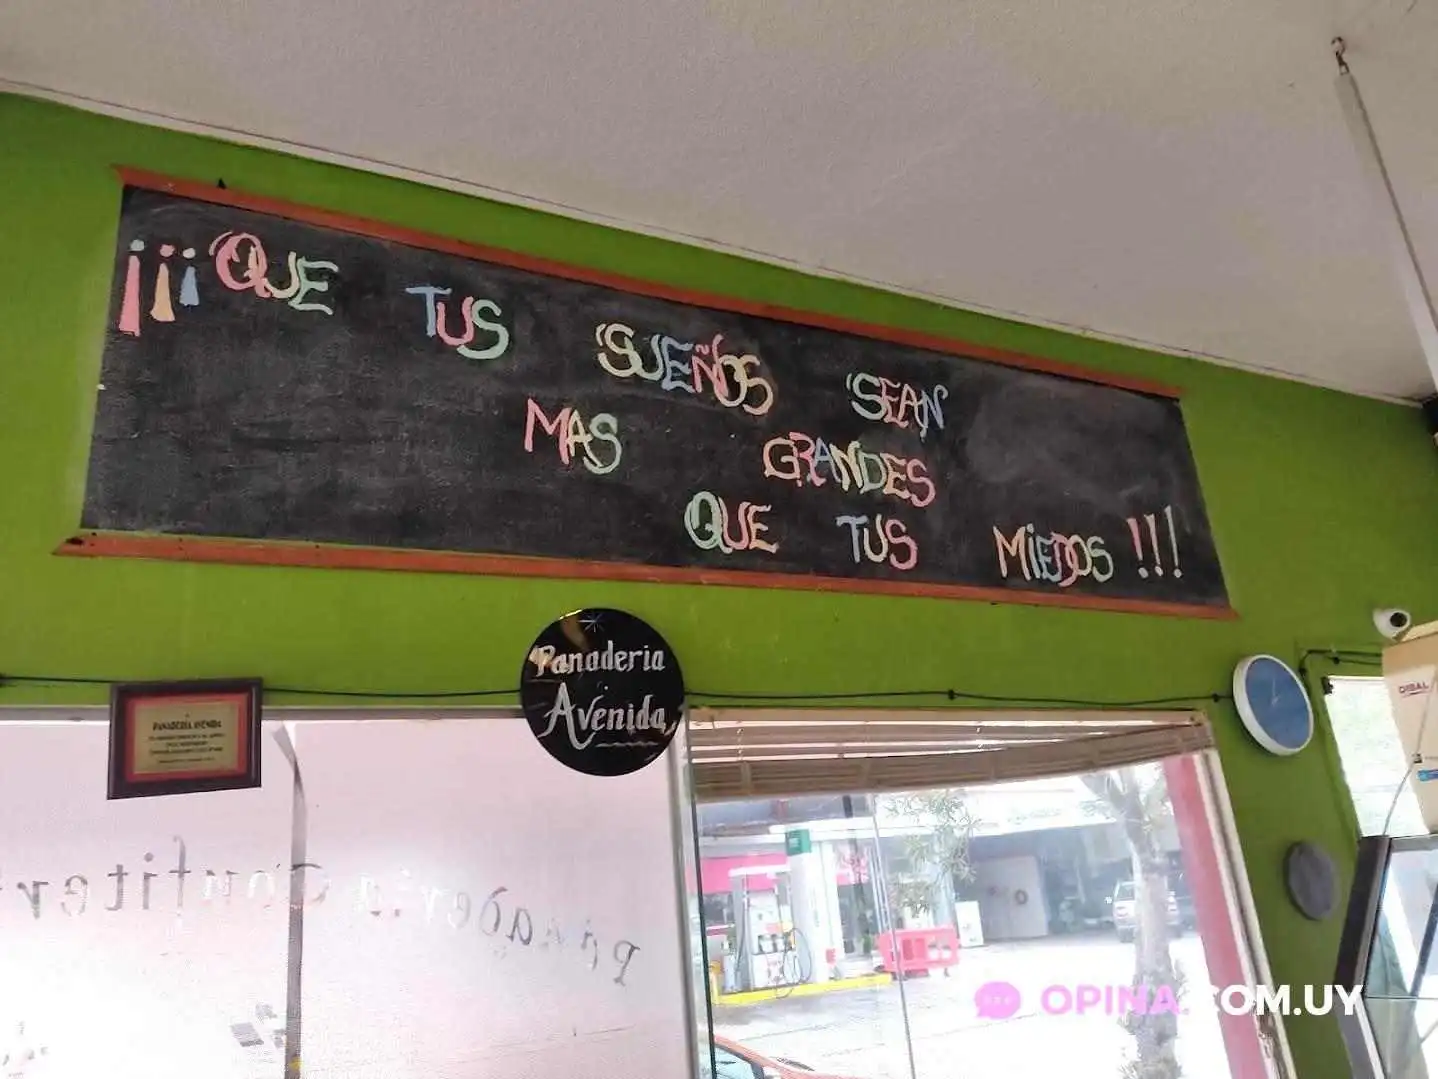 ¡¡¡QUE TUS SUEÑOS SEAN
MAS GRANDES
QUE TUS MIEDOS !!!
Panaderia
Avenida
PANADERIA AVENIDA
Panaderia Confiteri
DIBAL
OPINA.COM.UY